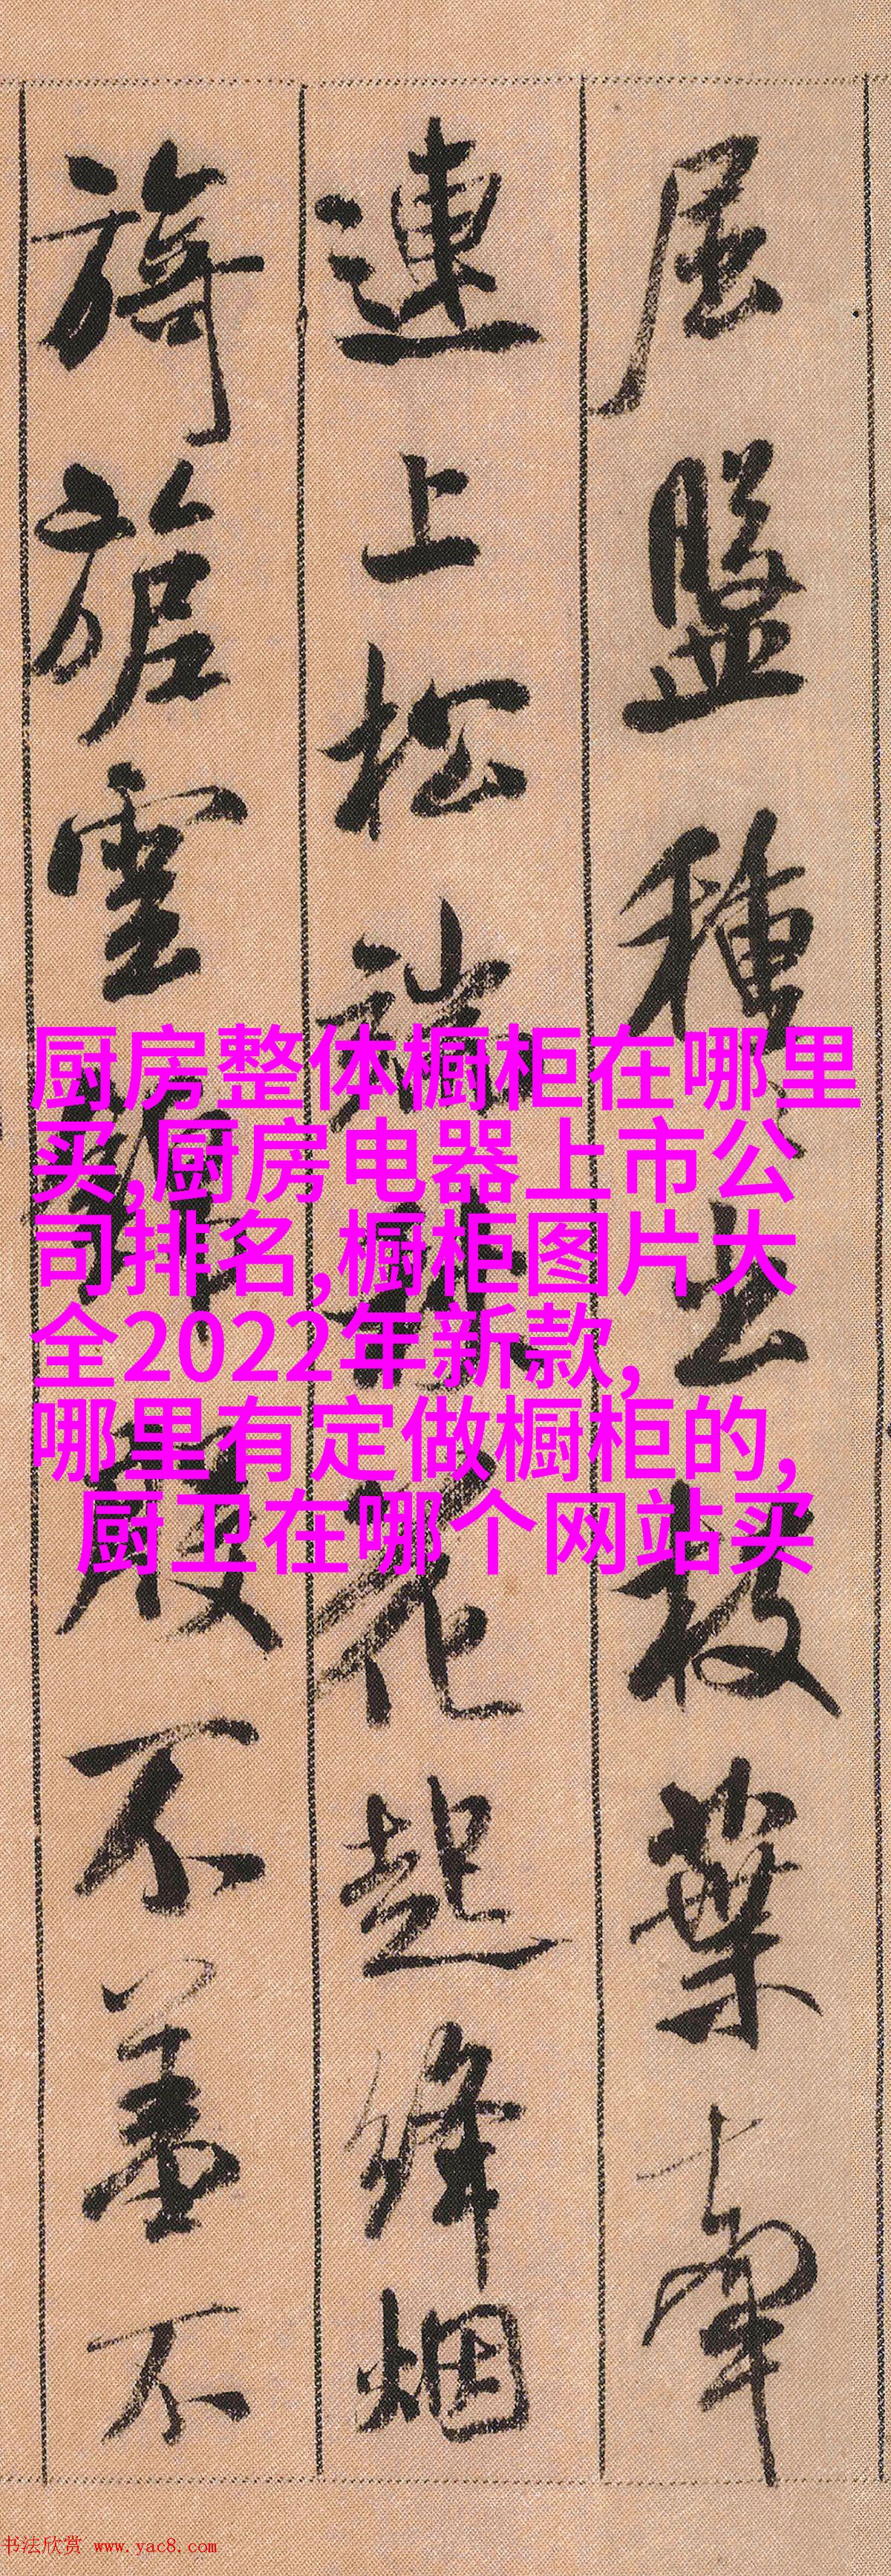 屈盤種〻出枝葉牽
連上松端秋花起絳烟
旖旎雲錦殷不羞不
厨房整体橱柜在哪里
买,厨房电器上市公
司排名,橱柜图片大
全2022年新款,
哪里有定做橱柜的,
厨卫在哪个网站买
书法欣赏 www.yac8.com